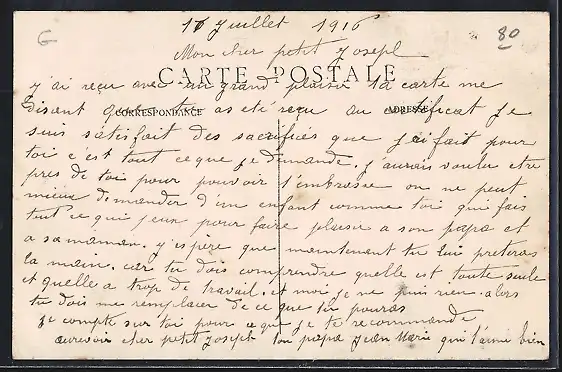 G
16 Juillet 1916
80
Mon cher petit Joseph
CARTE POSTALE
j'ai reçu avec un grand plaisir ta carte me
CORRESPONDANCE
ADRESSE
disent que tu as eté reçu au certificat Je
suis satisfait des sacrifiés que j'ai fait pour
toi c'est tout ceque je demande. j'aurais voulu etre
pres de toi pour pouvoir t'embrasse on ne peut
mieux demander d'un enfant comme toi qui fais
tout ce qui peux pour faire plaisir a son papa et
a sa maman. j'espere que maintenant tu lui preteras
la main. car tu dois comprendre quelle est toute seule
et quelle a trop de travail. et moi je ne puis rien. alors
tu dois me remplacer de ce que tu pouras
je compte sur toi pour ce que je te recommande
aurevoir cher petit Joseph ton papa Jean Marie qui t'aime bien